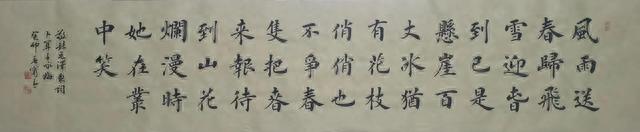 風雨送
春歸飛
雪迎春
到已是
懸崖百
丈冰猶
有花枝
俏俏也
不爭春
隻把春
來報待
到山花
爛漫時
她在叢
中笑
敬錄毛澤東詞
卜算子詠梅
癸卯